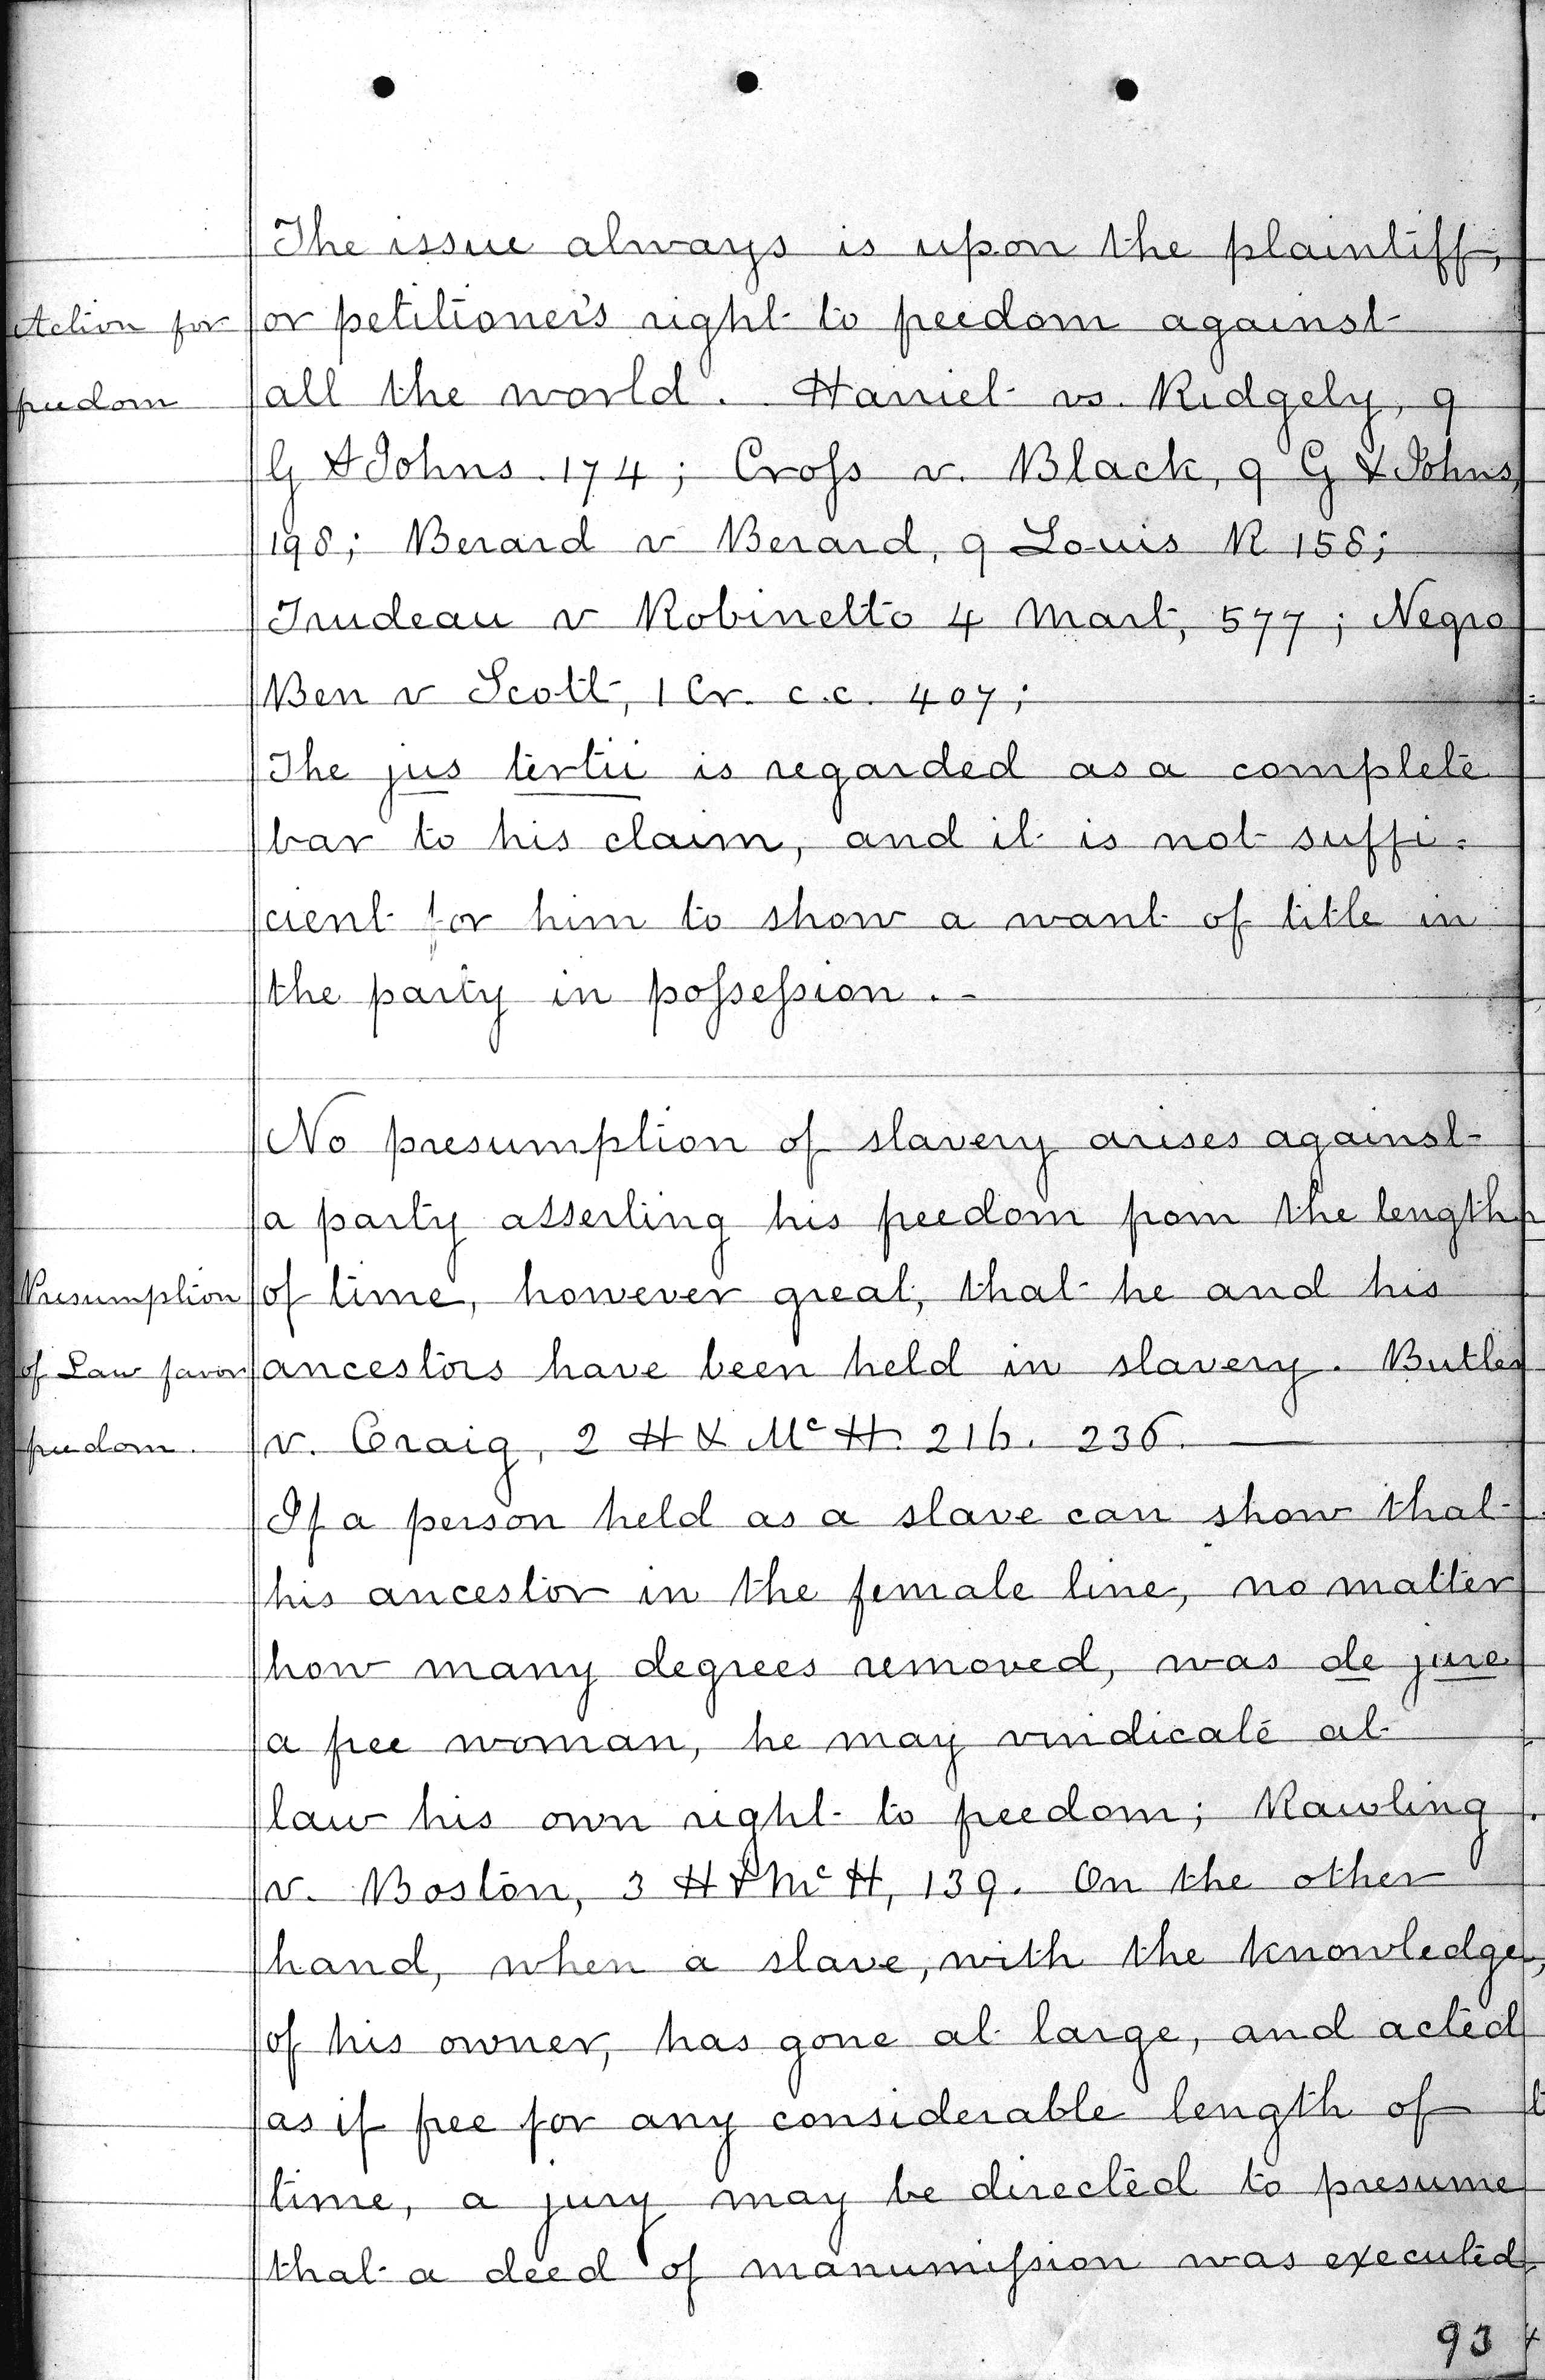 The issue always is upon the plaintiff,
Action for
freedom
or petitioner's right to freedom against
all the world. Harriet vs. Ridgely, 9
G & Johns. 174; Cross v. Black, 9 G & Johns,
198; Berard v Berard, 9 Louis R 158;
Trudeau v Robinetto 4 Mart, 577; Negro
Ben v Scott, 1 Cr. c.c. 407;
The jus tertii is regarded as a complete
bar to his claim, and it is not suffi-
cient for him to show a want of title in
the party in possession. -
No presumption of slavery arises against
a party asserting his freedom from the length
Presumption
of Law favor
freedom.
of time, however great, that he and his
ancestors have been held in slavery. Butler
v. Craig, 2 H & McH. 216. 236. —
If a person held as a slave can show that
his ancestor in the female line, no matter
how many degrees removed, was de jure
a free woman, he may vindicate at
law his own right to freedom; Rawling
v. Boston, 3 H & McH, 139. On the other
hand, when a slave, with the knowledge,
of his owner, has gone at large, and acted
as if free for any considerable length of
time, a jury may be directed to presume
that a deed of manumission was executed
93